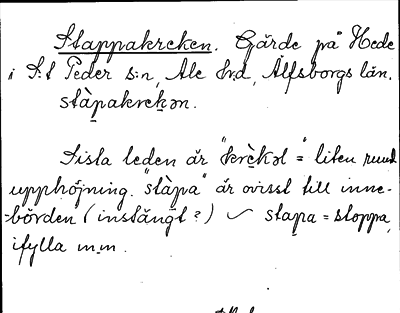 Stappakreken. Gärde på Hede
i S:t Peder s:n, Ale h:d, Älfsborgs län.
stàpakrekən.
Sista leden är "krèkəl =" liten rund
upphöjning. "stàpa" är ovisst till inne-
=börden (instängt?) ~ stapa = stoppa,
ifylla m.m.